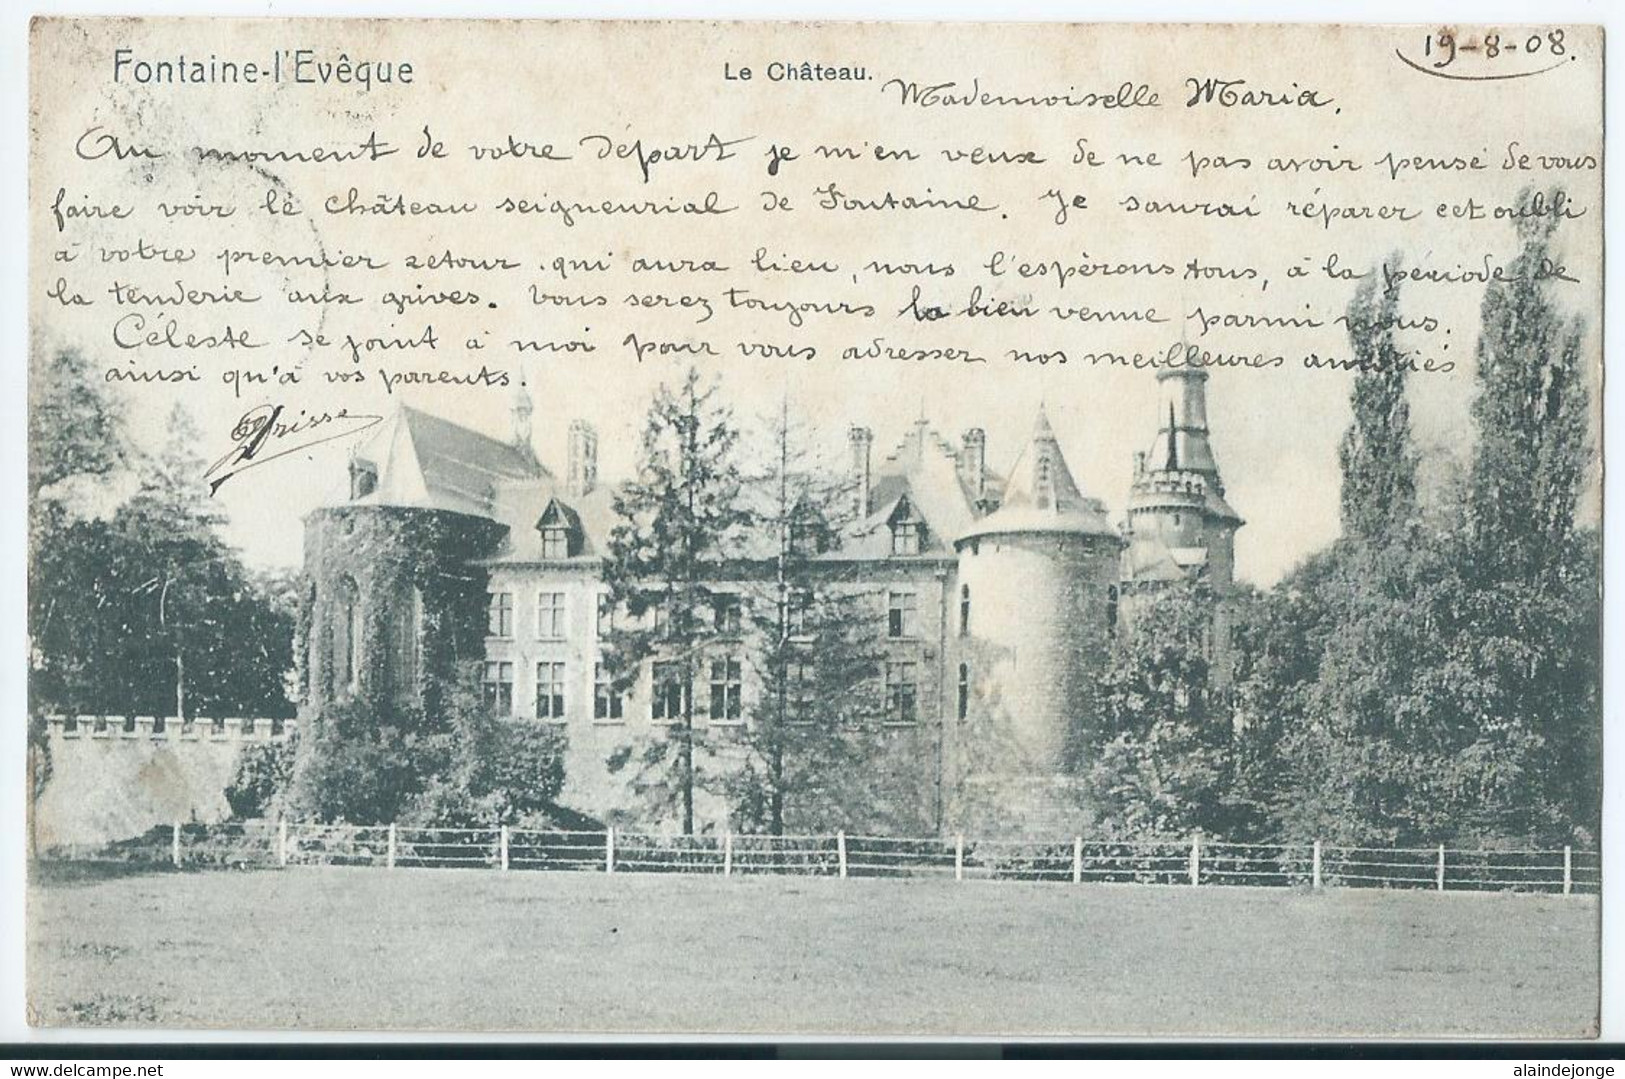 19-8-08.
Fontaine-l'Evêque
Le Château.
Mademoiselle Maria,
Au moment de votre départ je m'en veux de ne pas avoir pensé de vous
faire voir le château seigneurial de Fontaine. Je saurai réparer cet oubli
à votre premier retour qui aura lieu, nous l'espérons tous, à la période de
la tenderie aux grives. Vous serez toujours la bien venue parmi nous.
Céleste se joint à moi pour vous adresser nos meilleures amitiés
ainsi qu'à vos parents.
http://www.delcampe.net
alaindejonge